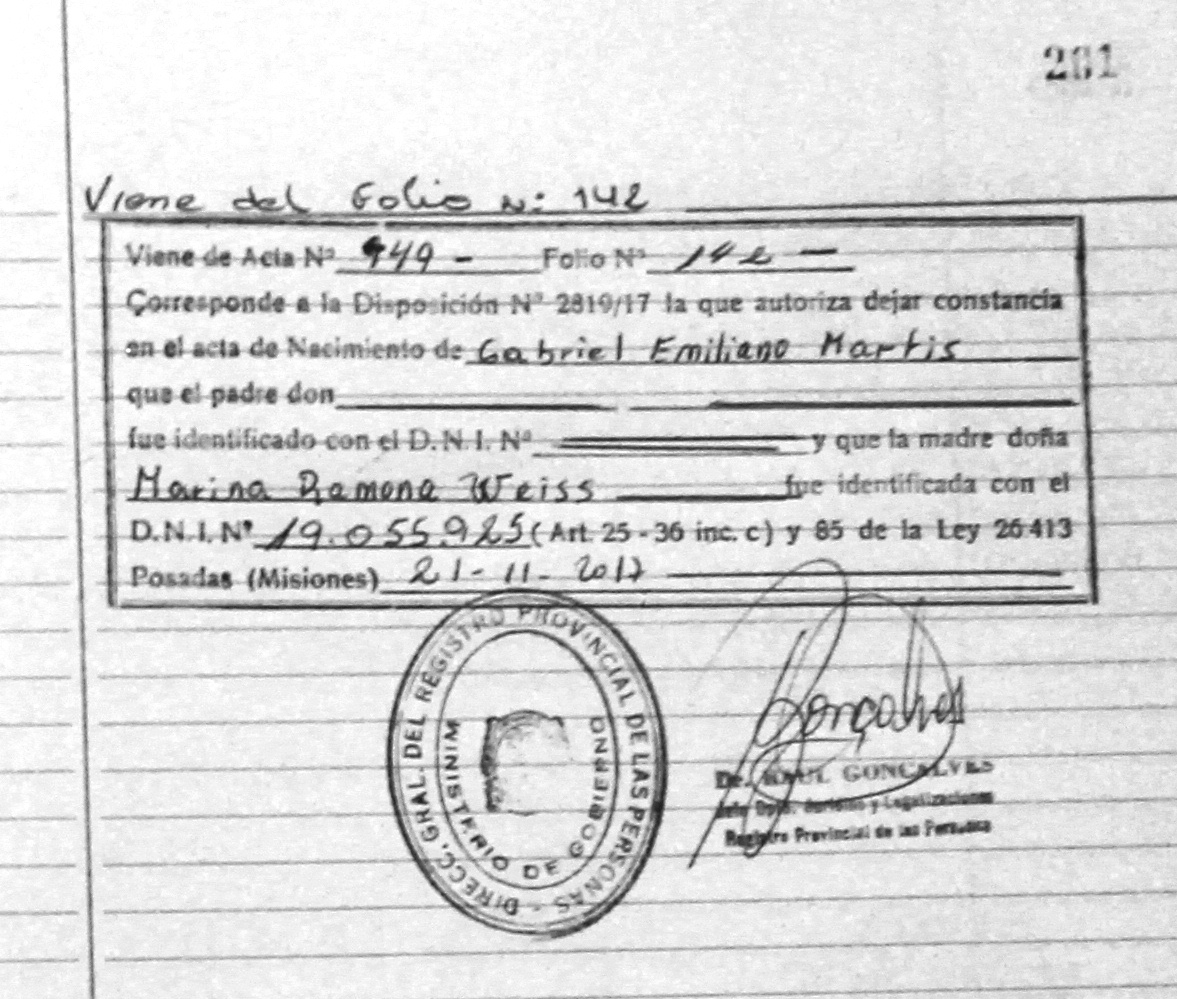 201
Viene del Folio N: 142
Viene de Acta Nº 949 - Folio Nº 142 -
Corresponde a la Disposición Nº 2819/17 la que autoriza dejar constancia
en el acta de Nacimiento de Gabriel Emiliano Martis
que el padre don
fue identificado con el D.N.I. Nº y que la madre doña
Marina Ramona Weiss fue identificada con el
D.N.I. Nº 19.055.925 (Art. 25 - 36 inc. c) y 85 de la Ley 26413
Posadas (Misiones) 21-11-2017
DIRECC. GRAL. DEL REGISTRO PROVINCIAL DE LAS PERSONAS -
MINISTERIO DE GOBIERNO
Gonçalves
Dr. RAUL GONCALVES
Jefe Dpto. Jurídico y Legalizaciones
Registro Provincial de las Personas